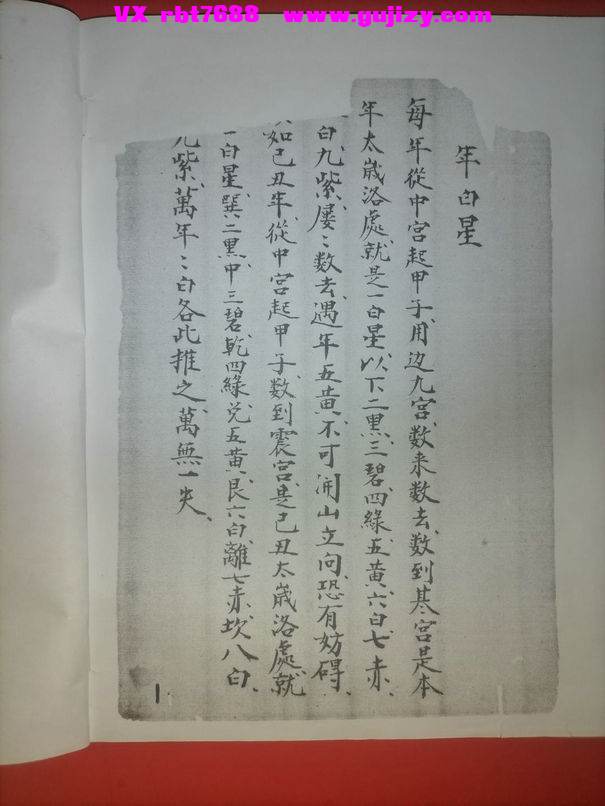 VX rbt7688 www.gujizy.com
年白星
每年從中宮起甲子用边九宮数来数去数到某宮是本
年太歲洛處就是一白星以下二黑三碧四綠五黃六白七赤
白九紫屡々数去遇年五黃不可開山立向恐有妨碍
如己丑年從中宮起甲子数到震宮是己丑太歲洛處就
一白星巽二黑中三碧乾四綠兑五黃艮六白離七赤坎八白
九紫萬年々白各此推之萬無一失